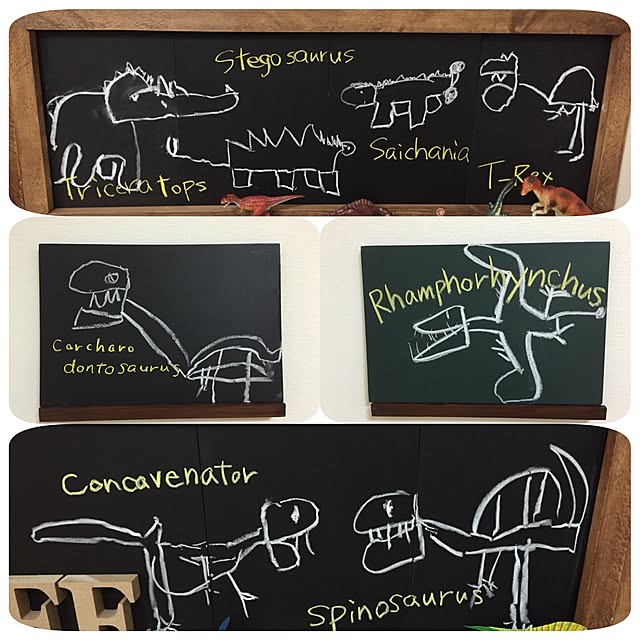 Stegosaurus
Saichania
T-Rex
Triceratops
Carcharo
dontosaurus
Rhamphorhynchus
Concavenator
Spinosaurus
FE